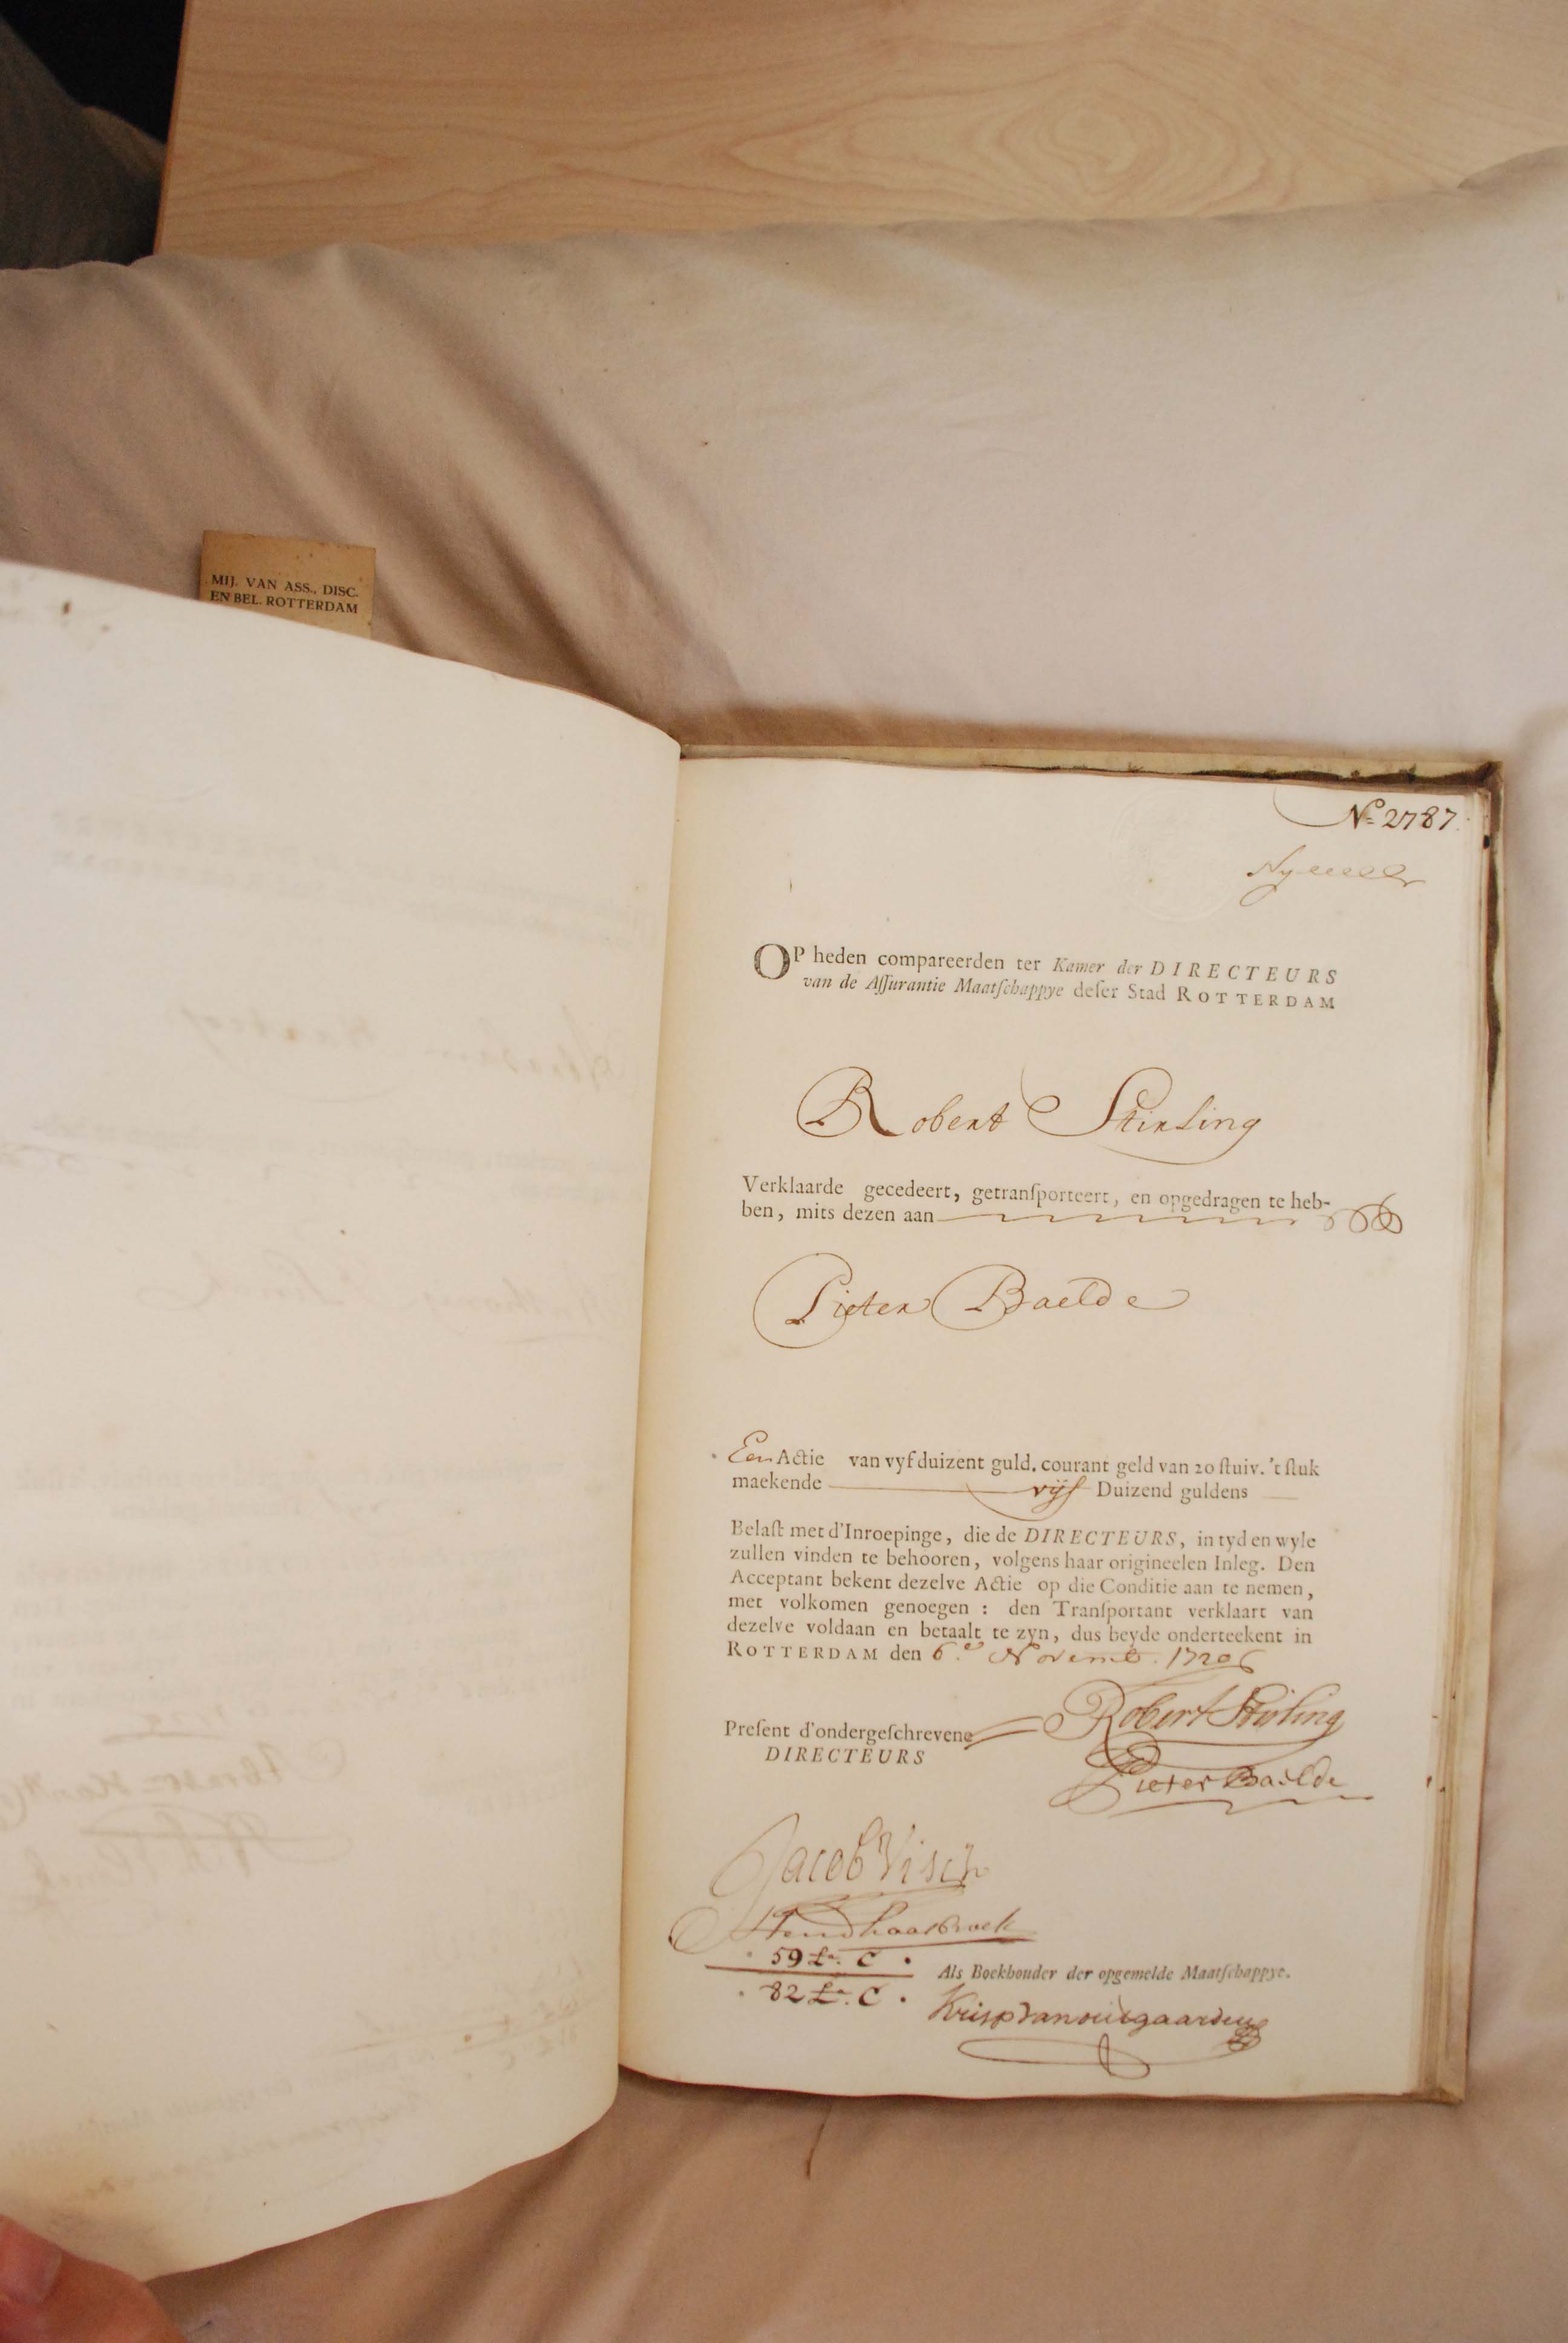 MIJ. VAN ASS., DISC.
EN BEL. ROTTERDAM
No 2787
OP heden compareerden ter Kamer der DIRECTEURS
van de Aſſurantie Maatſchappye deſer Stad ROTTERDAM
Robert Stirling
Verklaarde gecedeert, getranſporteert, en opgedragen te heb-
ben, mits dezen aan
Pieter Baelde
Een Actie van vyf duizent guld. courant geld van 20 ſtuiv. 't ſtuk
maekende vijf Duizend guldens
Belaſt met d'Inroepinge, die de DIRECTEURS, in tyd en wyle
zullen vinden te behooren, volgens haar origineelen Inleg. Den
Acceptant bekent dezelve Actie op die Conditie aan te nemen,
met volkomen genoegen : den Tranſportant verklaart van
dezelve voldaan en betaalt te zyn, dus beyde onderteekent in
ROTTERDAM den 6.e Novemb. 1720
Preſent d'ondergeſchrevene
DIRECTEURS
Robert Stirling
Pieter Baelde
Jacob Visch
59 La. C
82 La. C
Als Boekhouder der opgemelde Maatſchappye.